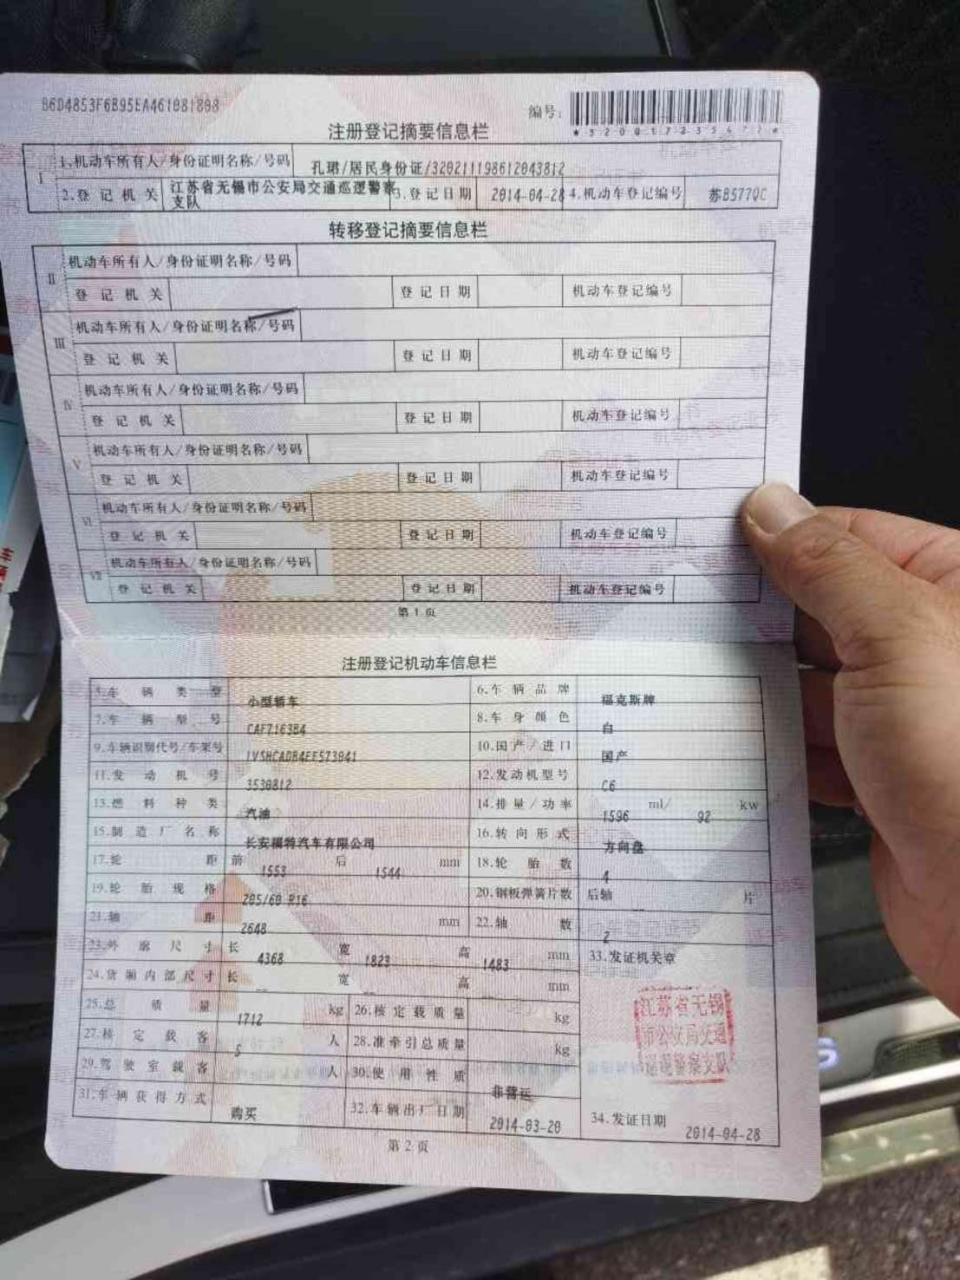 B6D4853F6B95EA461081808
编号:
*320017235477*
注册登记摘要信息栏
I 1.机动车所有人/身份证明名称/号码 孔珺/居民身份证/320211198612043812
2.登记机关 江苏省无锡市公安局交通巡逻警察支队 3.登记日期 2014-04-28 4.机动车登记编号 苏B577QC
转移登记摘要信息栏
II 机动车所有人/身份证明名称/号码
登记机关 登记日期 机动车登记编号
III 机动车所有人/身份证明名称/号码
登记机关 登记日期 机动车登记编号
IV 机动车所有人/身份证明名称/号码
登记机关 登记日期 机动车登记编号
V 机动车所有人/身份证明名称/号码
登记机关 登记日期 机动车登记编号
VI 机动车所有人/身份证明名称/号码
登记机关 登记日期 机动车登记编号
VII 机动车所有人/身份证明名称/号码
登记机关 登记日期 机动车登记编号
第1页
注册登记机动车信息栏
5.车辆类型 小型轿车 6.车辆品牌 福克斯牌
7.车辆型号 CAF7163B4 8.车身颜色 白
9.车辆识别代号/车架号 LVSHCADB4EF573041 10.国产/进口 国产
11.发动机号 3530812 12.发动机型号 C6
13.燃料种类 汽油 14.排量/功率 1596 ml/ 92 kw
15.制造厂名称 长安福特汽车有限公司 16.转向形式 方向盘
17.轮距 前 1553 后 1544 mm 18.轮胎数 4
19.轮胎规格 205/60 R16 20.钢板弹簧片数 后轴 -- 片
21.轴距 2648 mm 22.轴数 2
23.外廓尺寸 长 4368 宽 1823 高 1483 mm 33.发证机关章
24.货厢内部尺寸 长 -- 宽 -- 高 -- mm
25.总质量 1712 kg 26.核定载质量 kg
27.核定载客 5 人 28.准牵引总质量 kg
29.驾驶室载客 人 30.使用性质 非营运
31.车辆获得方式 购买 32.车辆出厂日期 2014-03-20 34.发证日期 2014-04-28
江苏省无锡
市公安局交通
巡逻警察支队
第2页